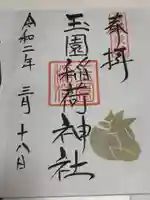 奉拝
玉園稲荷神社
令和二年三月十八日